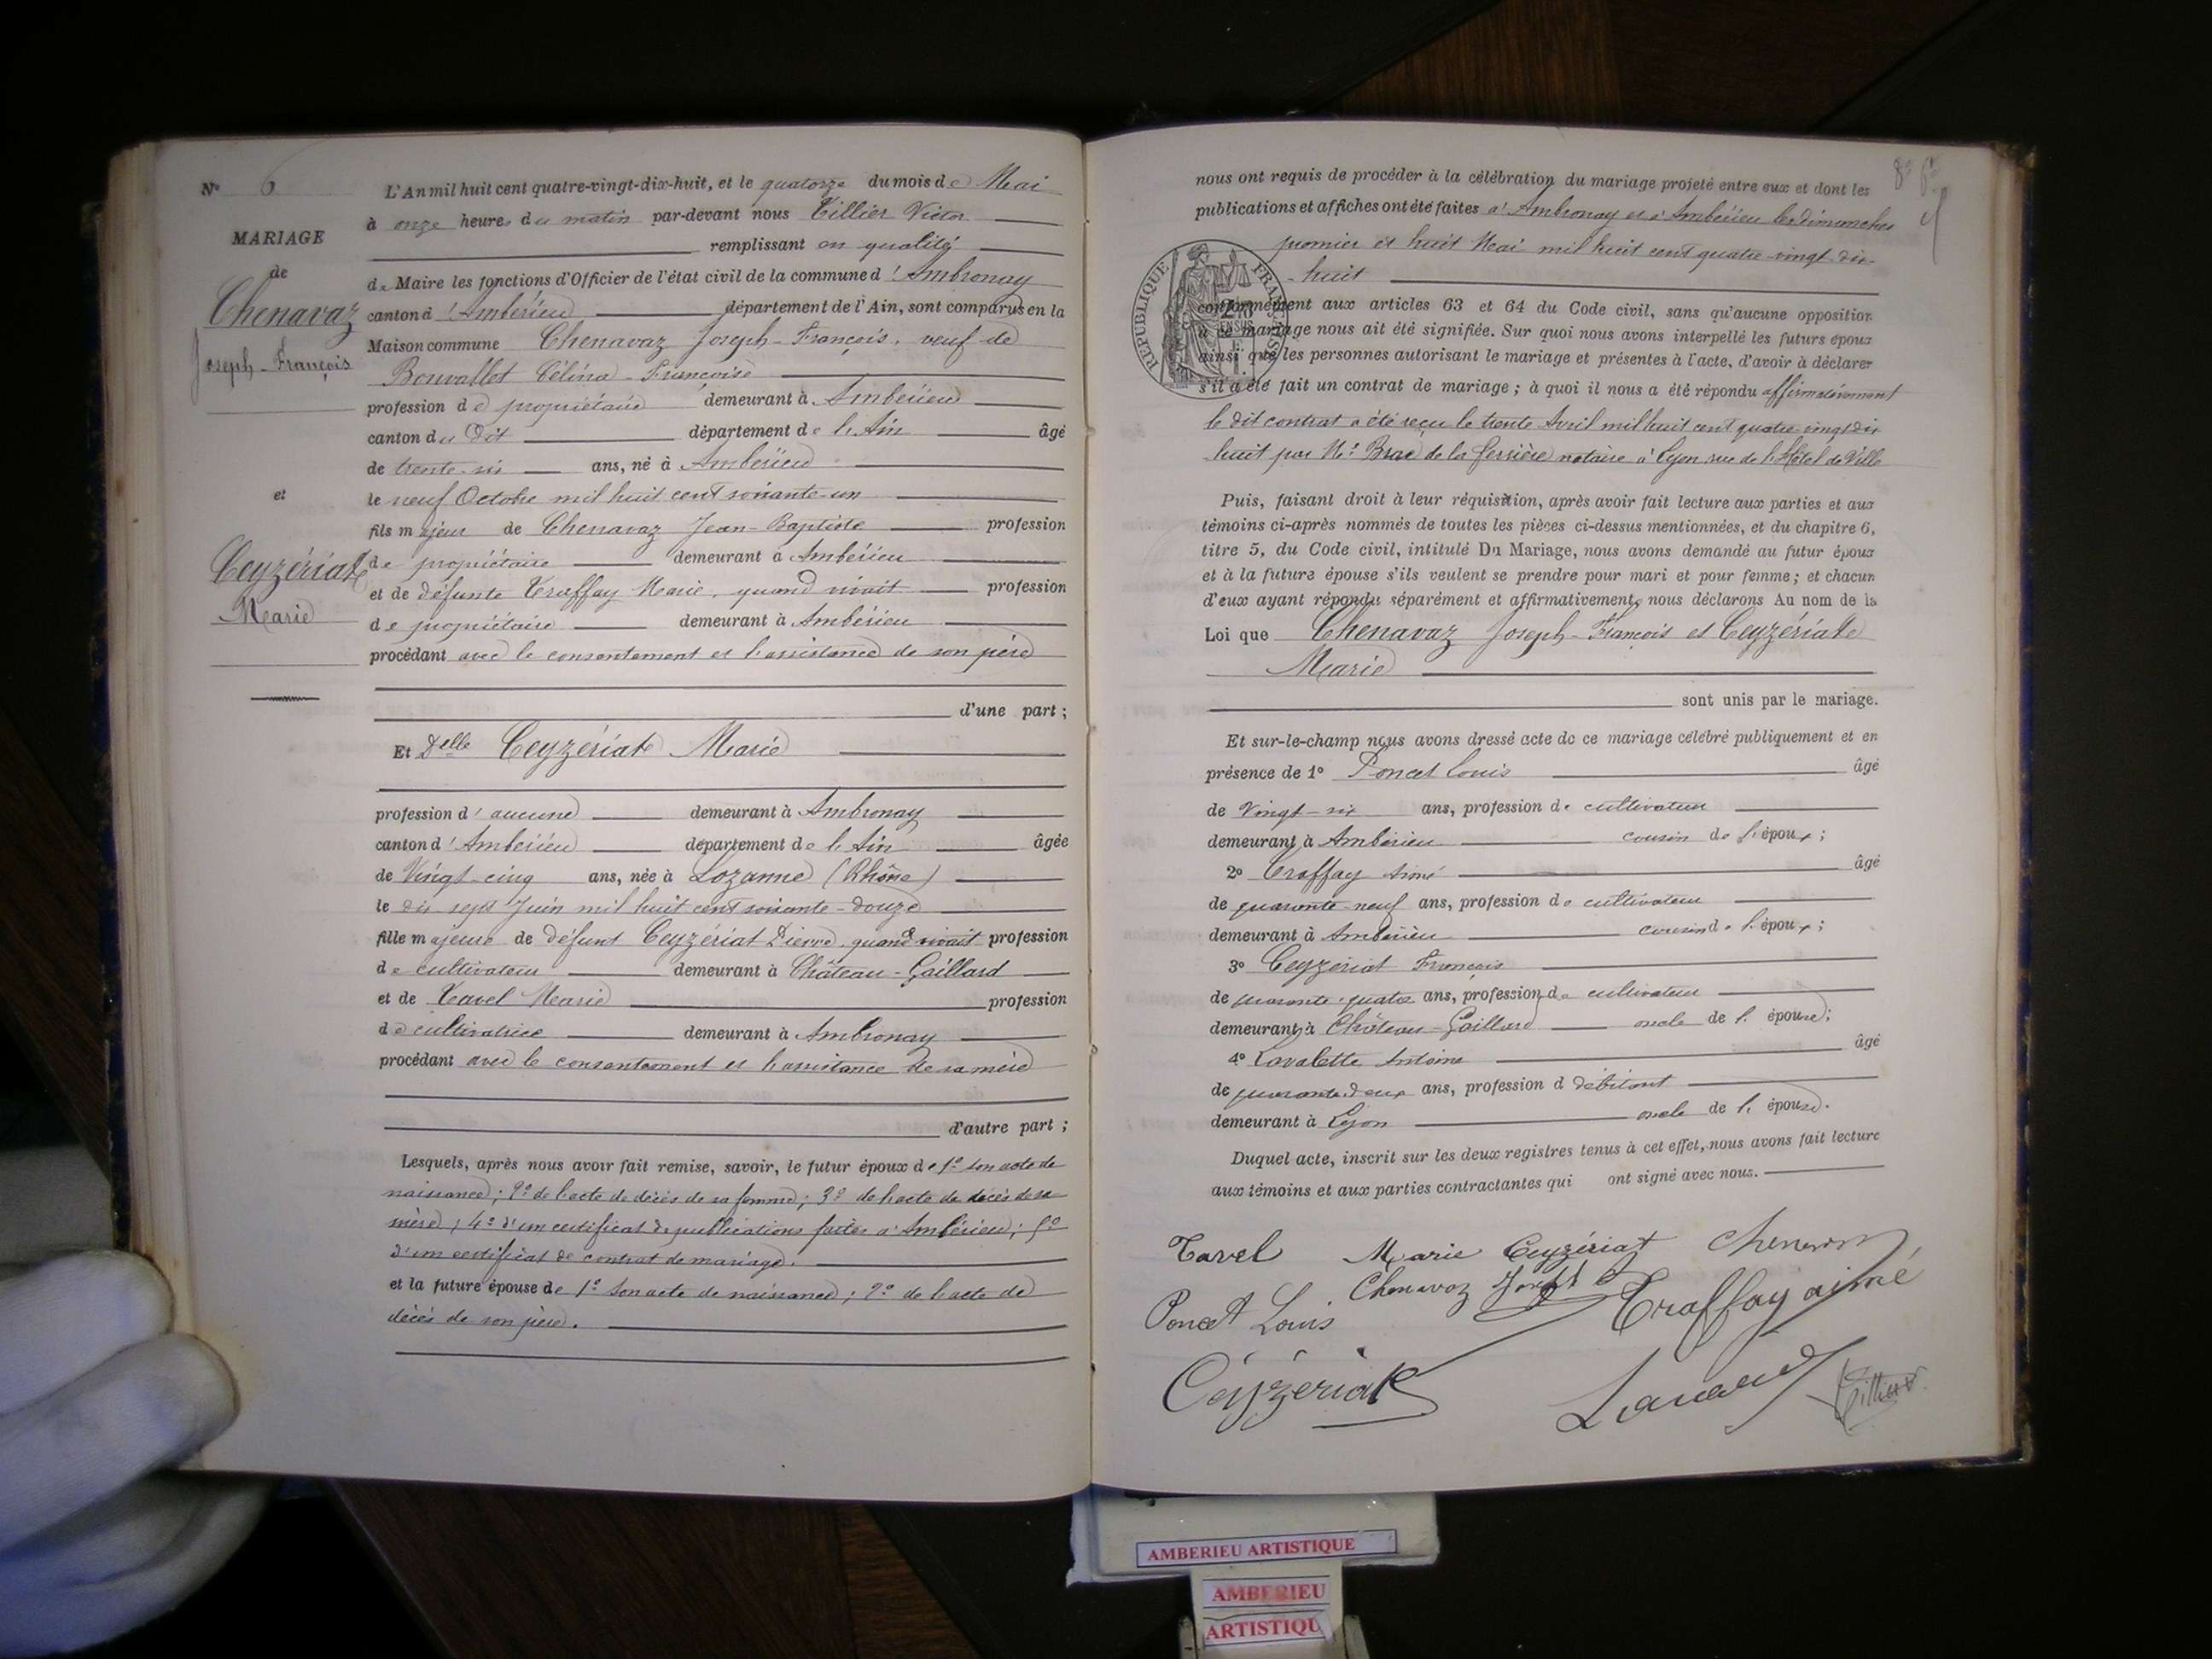 N° 6
MARIAGE
de
Chenavaz
Joseph-François
et
Ceyzériat
Marie
L'An mil huit cent quatre-vingt-dix-huit, et le quatorze du mois de Mai
à onze heures du matin par-devant nous Tillier Victor
remplissant en qualité
de Maire les fonctions d'Officier de l'état civil de la commune d'Ambronay
canton d'Ambérieu département de l'Ain, sont comparus en la
Maison commune Chenavaz Joseph-François, veuf de
Bouvallet Célina-Françoise
profession de propriétaire demeurant à Ambérieu
canton du Dit département de l'Ain âgé
de trente-six ans, né à Ambérieu
le neuf Octobre mil huit cent soixante-un
fils majeur de Chenavaz Jean-Baptiste profession
de propriétaire demeurant à Ambérieu
et de défunte Traffay Marie, quand vivait profession
de propriétaire demeurant à Ambérieu
procédant avec le consentement et l'assistance de son père
d'une part ;
Et Delle Ceyzériat Marie
profession d'aucune demeurant à Ambronay
canton d'Ambérieu département de l'Ain âgée
de Vingt-cinq ans, née à Lozanne (Rhône)
le dix sept Juin mil huit cent soixante-douze
fille majeure de défunt Ceyzériat Pierre, quand vivait profession
de cultivateur demeurant à Château-Gaillard
et de Tavel Marie profession
de cultivatrice demeurant à Ambronay
procédant avec le consentement et l'assistance de sa mère
d'autre part ;
Lesquels, après nous avoir fait remise, savoir, le futur époux de 1° son acte de
naissance ; 2° de l'acte de décès de sa femme ; 3° de l'acte de décès de sa
mère ; 4° d'un certificat de publications faites à Ambérieu ; 5°
d'un certificat de contrat de mariage.
et la future épouse de 1° son acte de naissance ; 2° de l'acte de
décès de son père.
nous ont requis de procéder à la célébration du mariage projeté entre eux et dont les
publications et affiches ont été faites à Ambronay et à Ambérieu les dimanches
premier et huit Mai mil huit cent quatre-vingt dix-
-huit
RÉPUBLIQUE FRANÇAISE
conformément aux articles 63 et 64 du Code civil, sans qu'aucune opposition
à ce mariage nous ait été signifiée. Sur quoi nous avons interpellé les futurs époux
ainsi que les personnes autorisant le mariage et présentes à l'acte, d'avoir à déclarer
s'il a été fait un contrat de mariage ; à quoi il nous a été répondu affirmativement
le dit contrat a été reçu le trente Avril mil huit cent quatre-vingt dix
huit par Me Brac de la Perrière notaire à Lyon rue de l'Hôtel de Ville
Puis, faisant droit à leur réquisition, après avoir fait lecture aux parties et aux
témoins ci-après nommés de toutes les pièces ci-dessus mentionnées, et du chapitre 6,
titre 5, du Code civil, intitulé Du Mariage, nous avons demandé au futur époux
et à la future épouse s'ils veulent se prendre pour mari et pour femme ; et chacun
d'eux ayant répondu séparément et affirmativement, nous déclarons Au nom de la
Loi que Chenavaz Joseph-François et Ceyzériat
Marie
sont unis par le mariage.
Et sur-le-champ nous avons dressé acte de ce mariage célébré publiquement et en
présence de 1° Poncet Louis âgé
de Vingt-six ans, profession de cultivateur
demeurant à Ambérieu cousin de l'époux ;
2° Traffay Aimé âgé
de quarante-neuf ans, profession de cultivateur
demeurant à Ambérieu cousin de l'époux ;
3° Ceyzériat François
de quarante-quatre ans, profession de cultivateur
demeurant à Château-Gaillard oncle de l'épouse ;
4° Lavalette Antoine âgé
de quarante-deux ans, profession d débitant
demeurant à Lyon oncle de l'épouse.
Duquel acte, inscrit sur les deux registres tenus à cet effet, nous avons fait lecture
aux témoins et aux parties contractantes qui ont signé avec nous.
Tavel Marie Ceyzériat
Chenavaz Joseph
Poncet Louis Traffay aimé
Ceyzériat Tillier
AMBERIEU ARTISTIQUE
AMBERIEU
ARTISTIQU